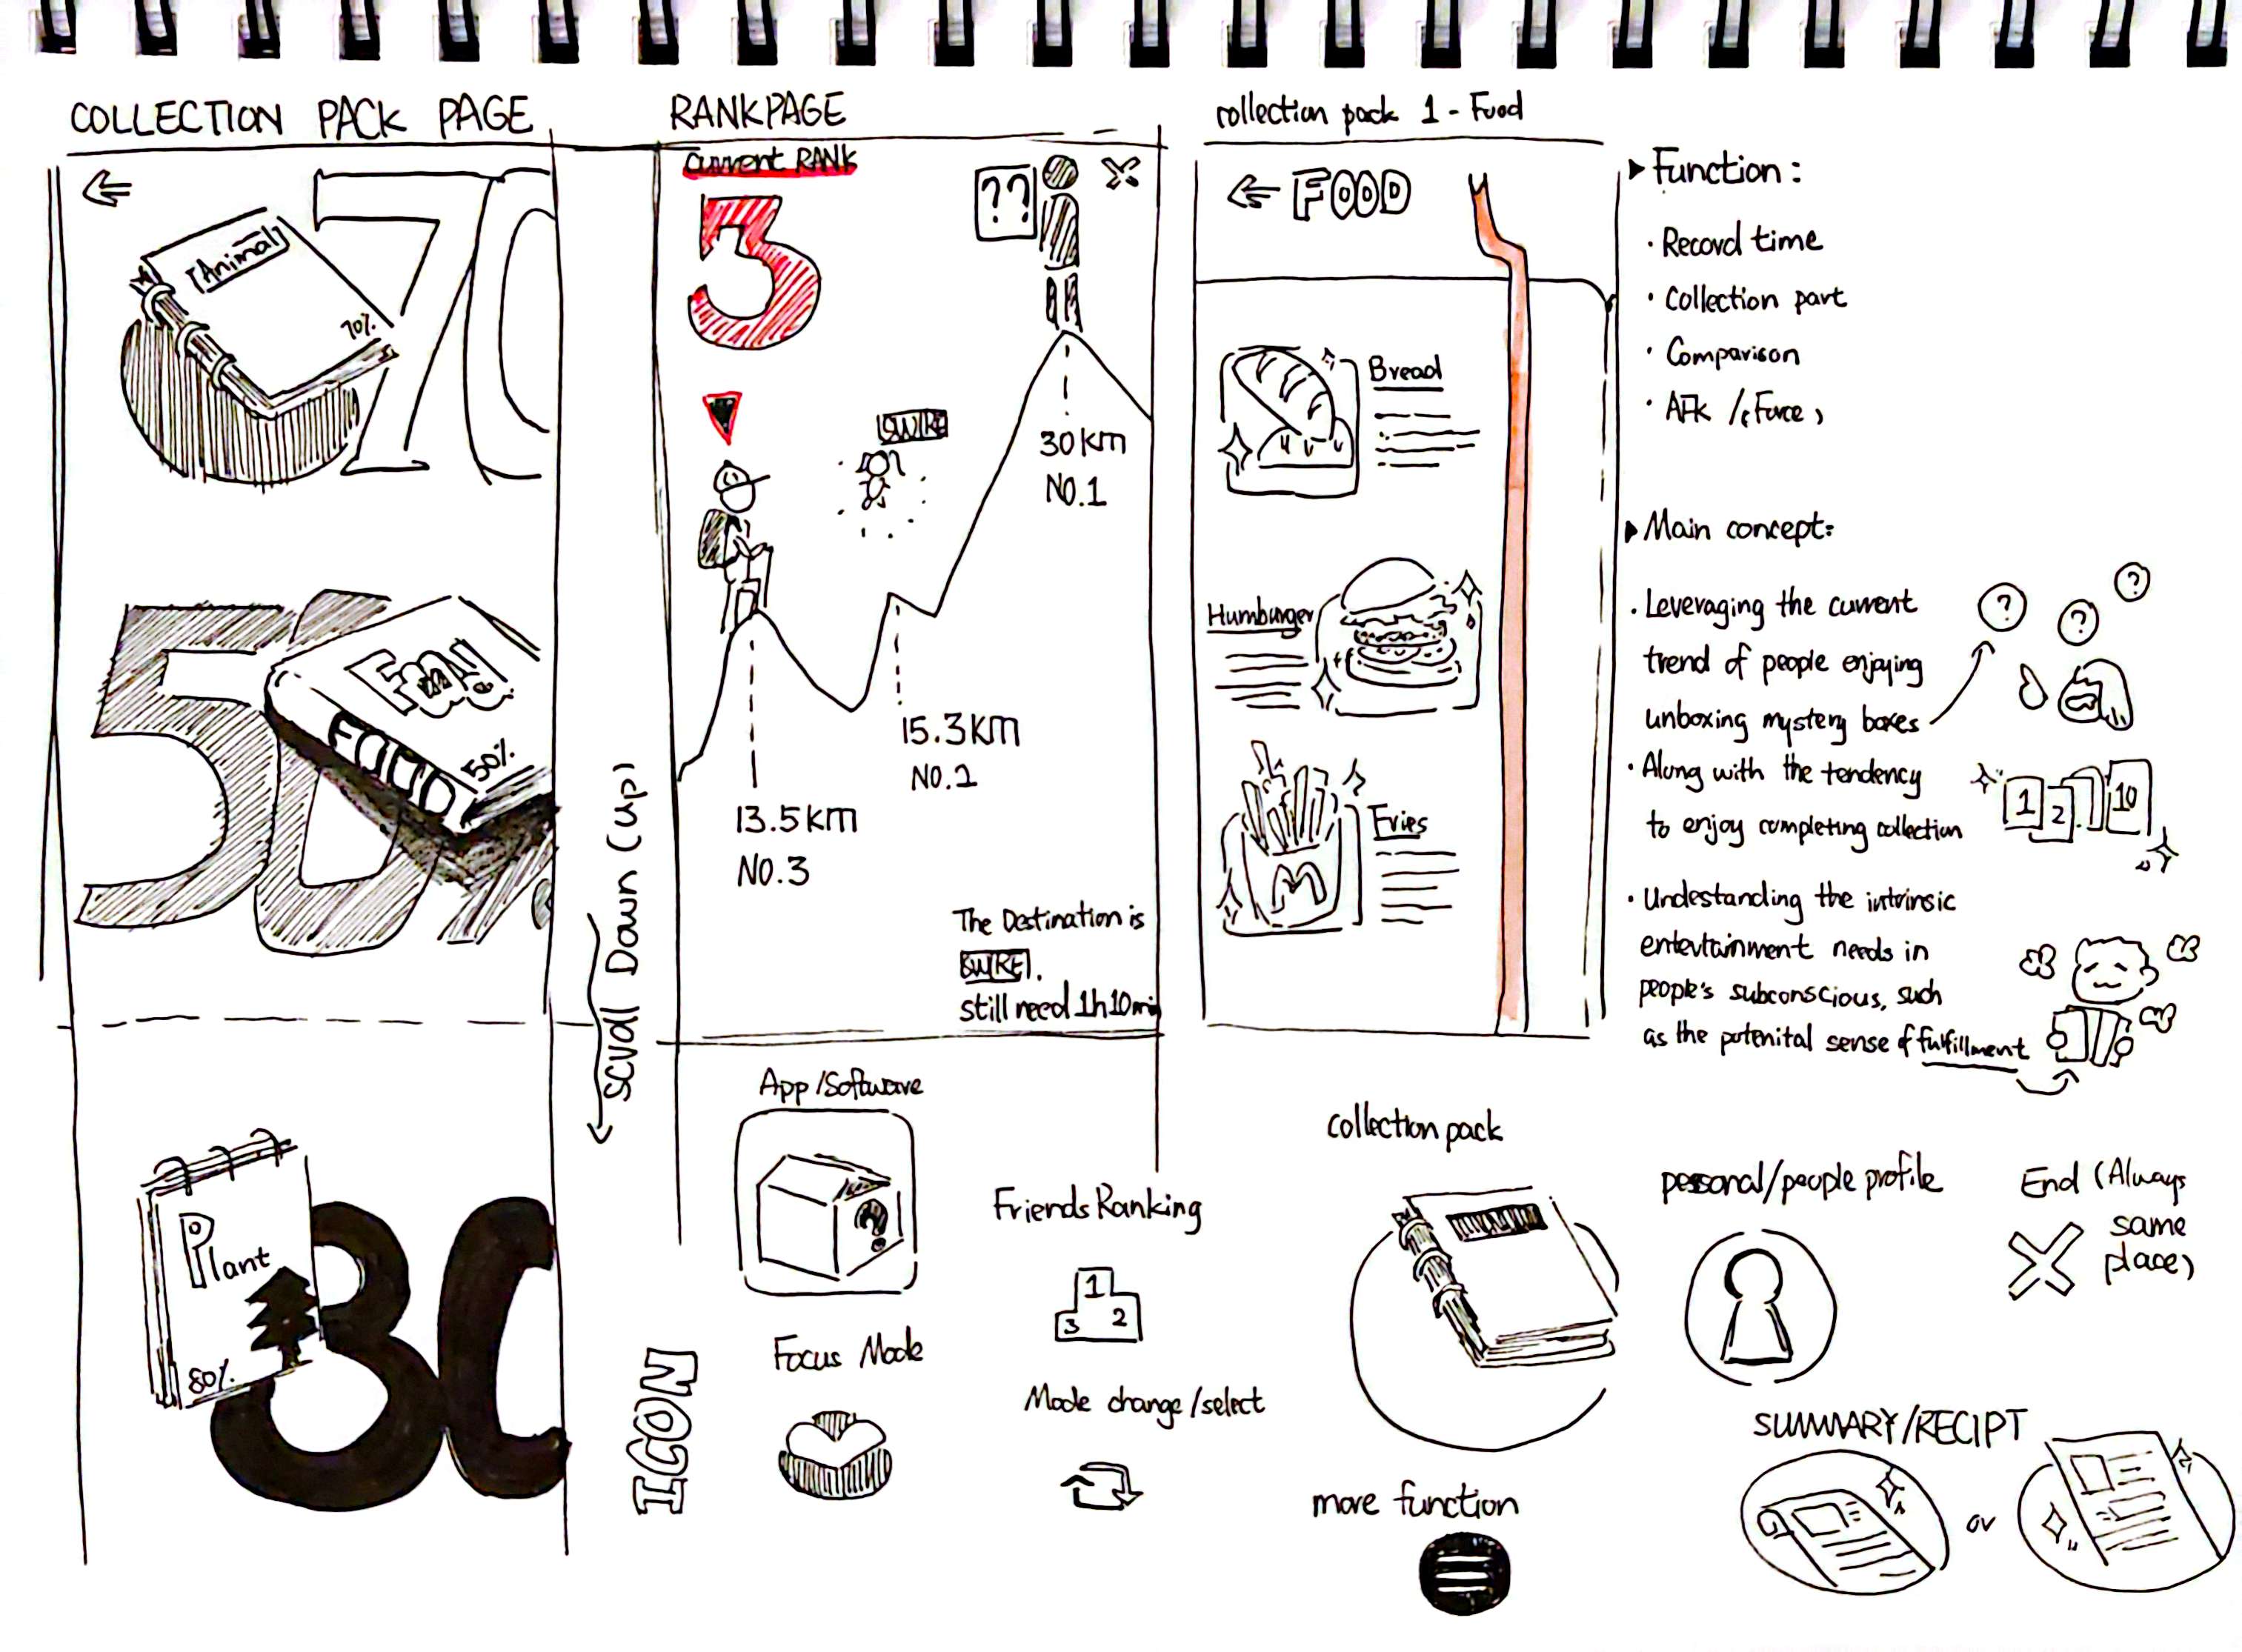 COLLECTION PACK PAGE
Animal
70%
70
Food
FOOD
50%
50%
Plant
80%
80
Scroll Down (up)
RANKPAGE
Current RANK
3
??
SWIRE
30km
NO.1
15.3km
NO.2
13.5km
NO.3
The Destination is
SWIRE.
still need 1h10min
collection pack 1 - Food
FOOD
Bread
Humburger
Fries
M
Function:
· Record time
· Collection part
· Comparison
· AFK / (Force)
Main concept:
· Leveraging the current
trend of people enjoying
unboxing mystery boxes
? ? ?
· Along with the tendency
to enjoy completing collection
1 2 10
· Undestanding the intrinsic
entertainment needs in
people's subconscious, such
as the potenital sense of fulfillment
ICON
App/Software
?
Friends Ranking
1
3 2
Focus Mode
Mode change/select
collection pack
more function
personal/people profile
End (Always
same
place)
SUMMARY/RECIPT
or